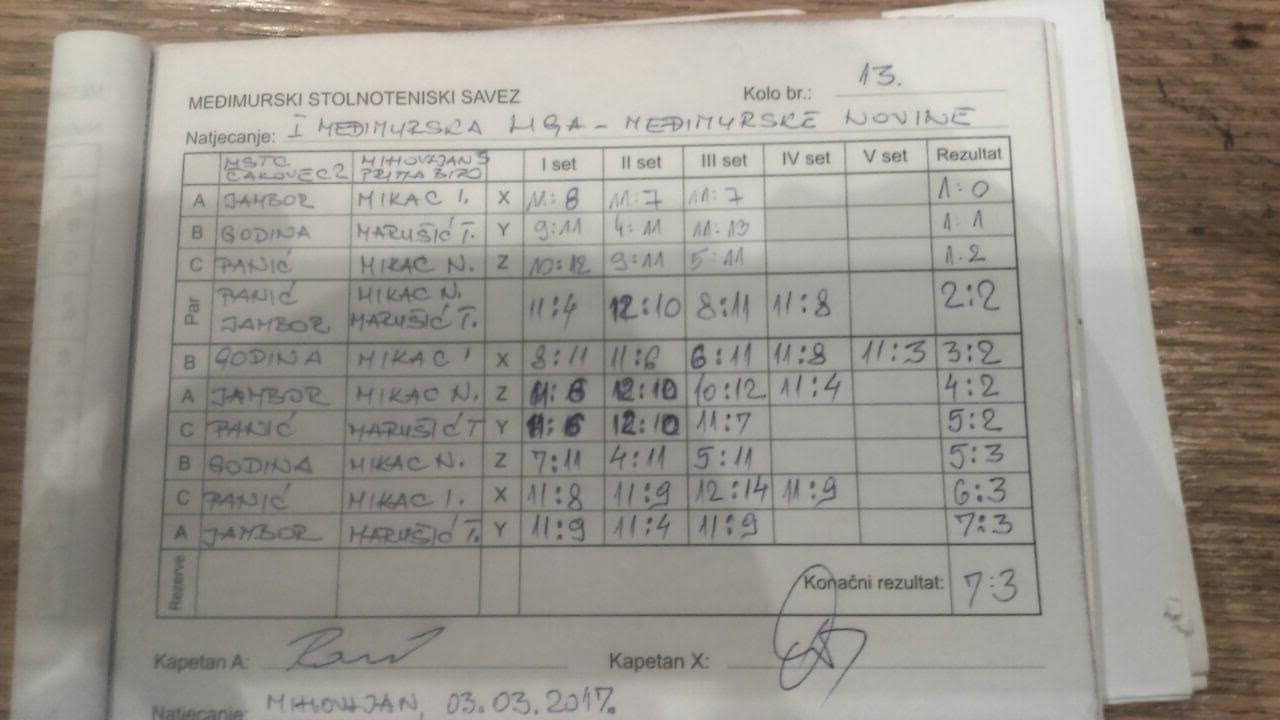 MEĐIMURSKI STOLNOTENISKI SAVEZ Kolo br.: 13.
Natjecanje: I MEĐIMURSKA LIGA - MEĐIMURSKE NOVINE
MSTC ČAKOVEC 2 MIHOVLJAN 5 PRIMA BIRO I set II set III set IV set V set Rezultat
A JAMBOR MIKAC I. X 11:8 11:7 11:7 1:0
B GODINA MARUŠIĆ T. Y 9:11 4:11 11:13 1:1
C PANIĆ MIKAC N. Z 10:12 9:11 5:11 1:2
Par PANIĆ MIKAC N. 11:4 12:10 8:11 11:8 2:2
JAMBOR MARUŠIĆ T.
B GODINA MIKAC I X 8:11 11:6 6:11 11:8 11:3 3:2
A JAMBOR MIKAC N. Z 11:6 12:10 10:12 11:4 4:2
C PANIĆ MARUŠIĆ T Y 11:6 12:10 11:7 5:2
B GODINA MIKAC N. Z 7:11 4:11 5:11 5:3
C PANIĆ MIKAC I. X 11:8 11:9 12:14 11:9 6:3
A JAMBOR MARUŠIĆ T. Y 11:9 11:4 11:9 7:3
Rezerve Konačni rezultat: 7:3
Kapetan A: Kapetan X:
Natjecanje: MIHOVLJAN, 03.03.2017.